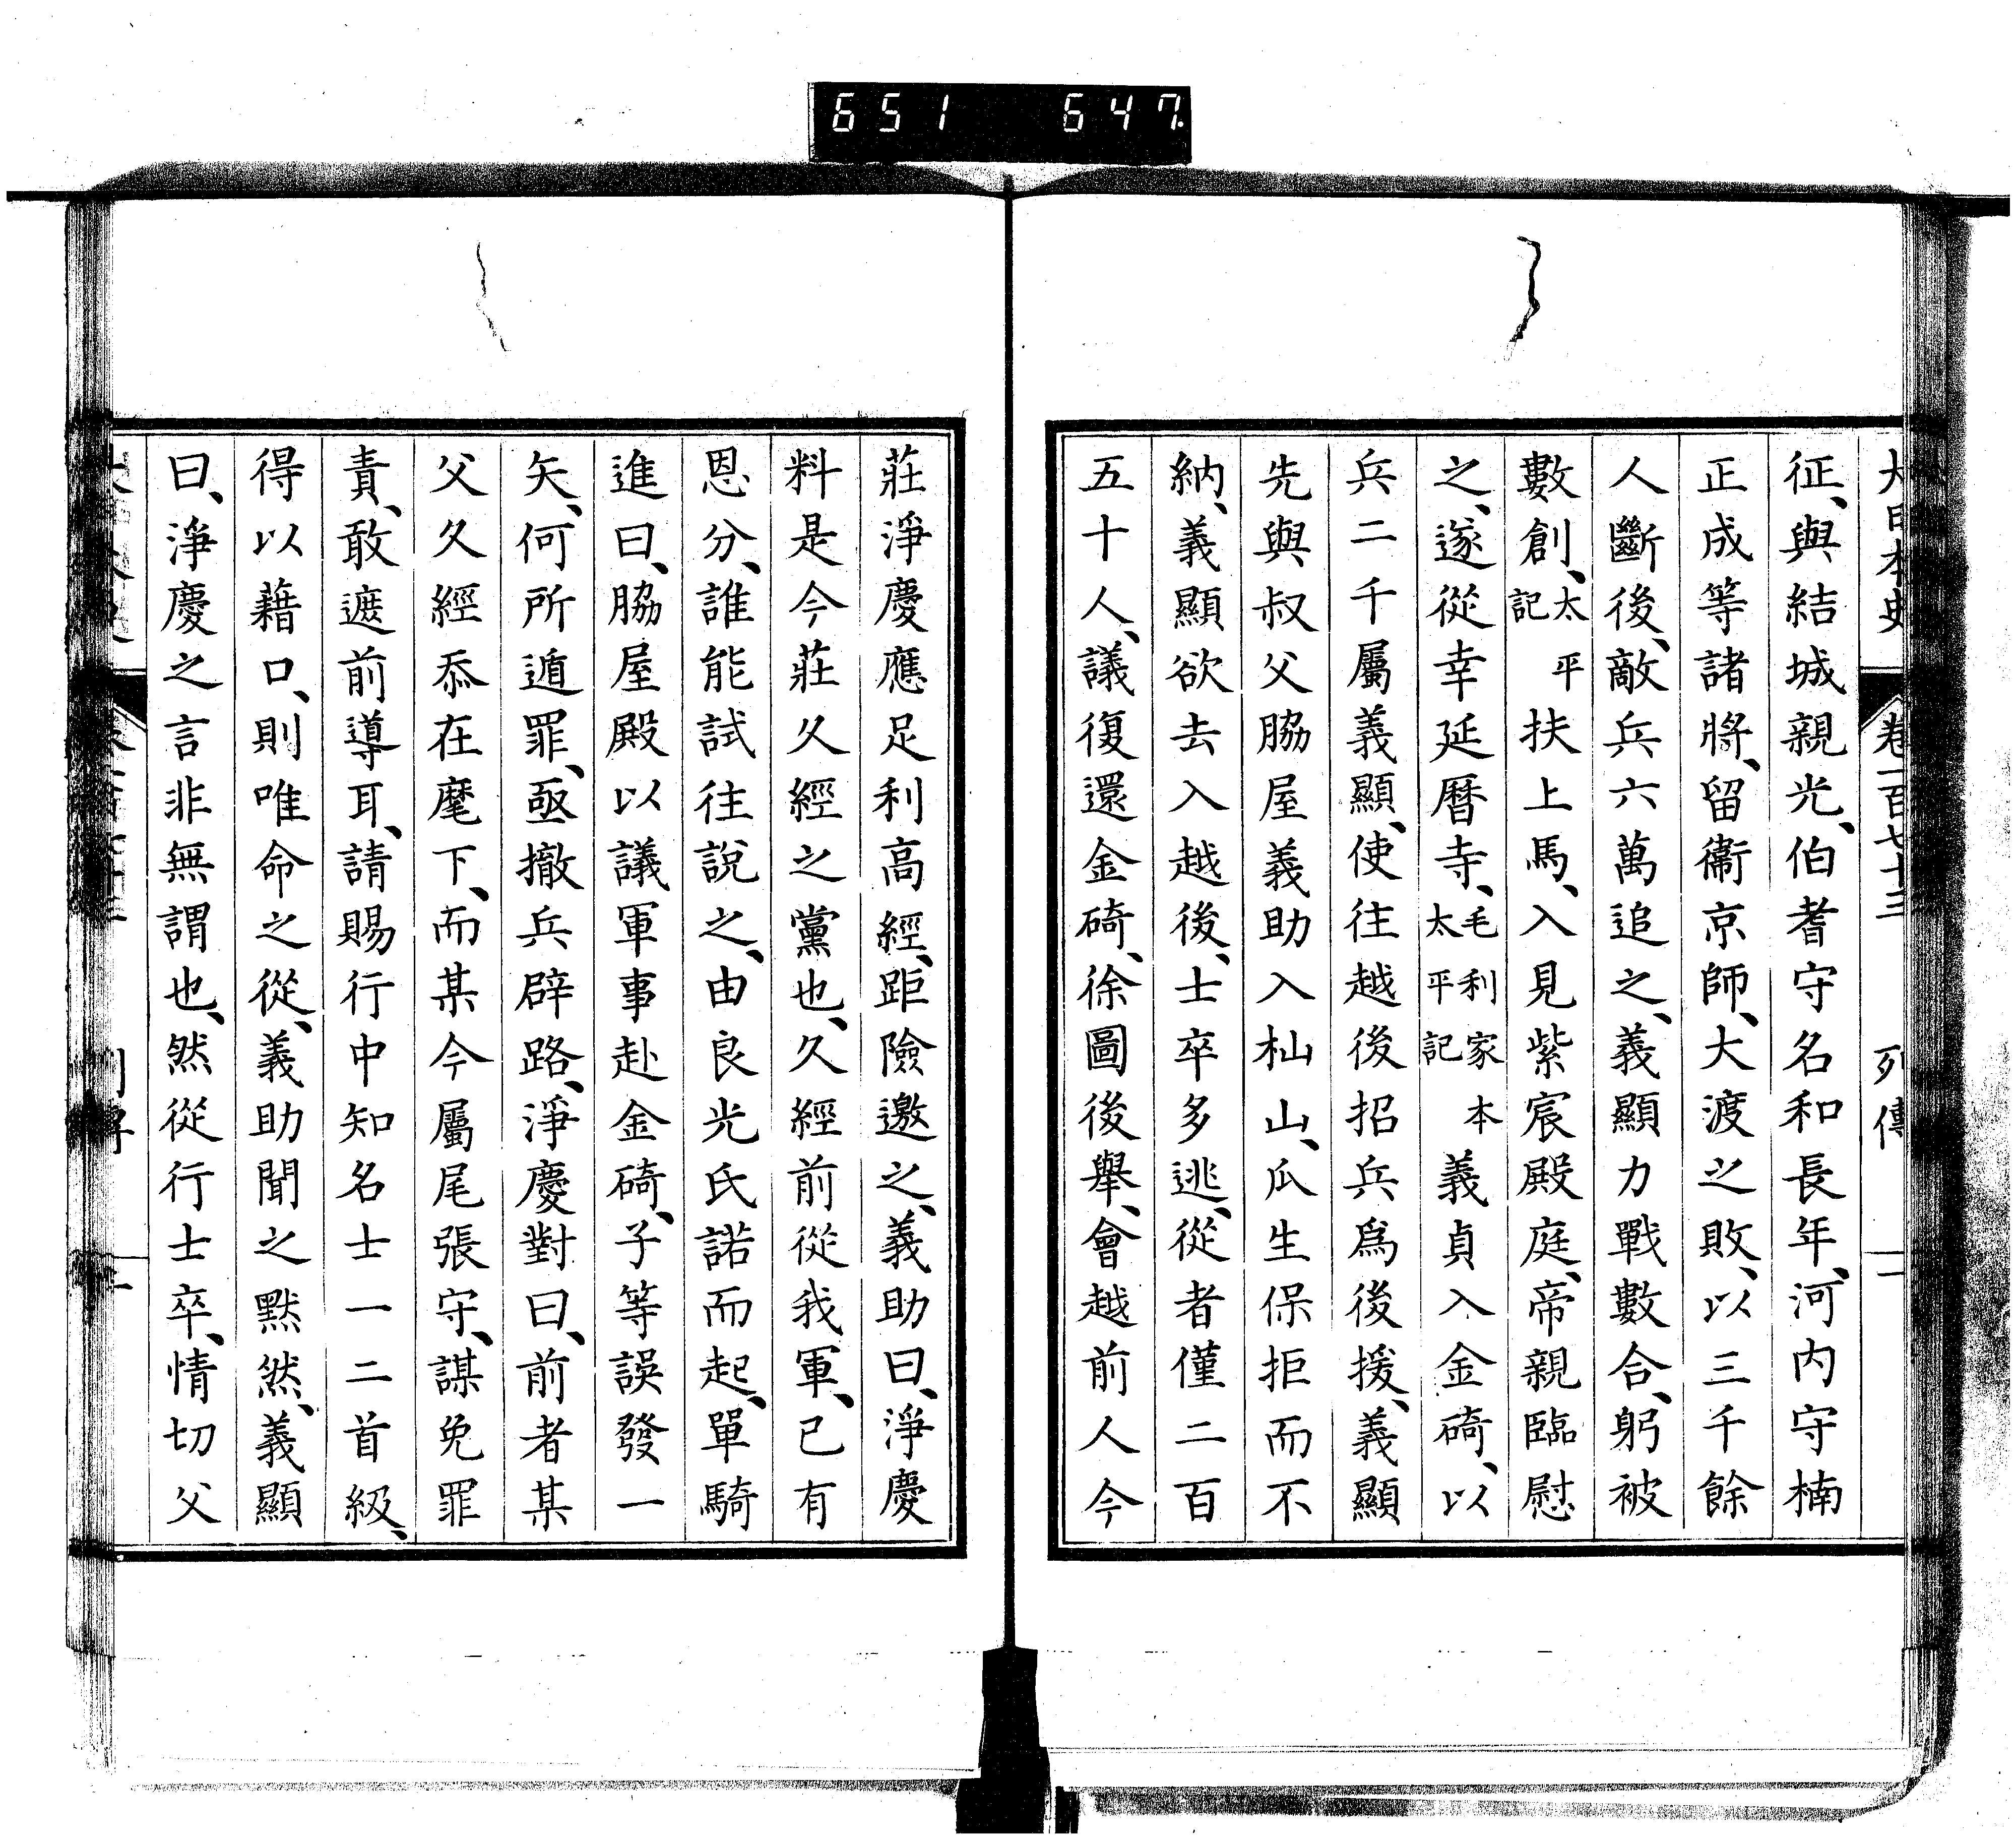 651 647
大日本史 卷一百七十三 列傳 一
征、與結城親光、伯耆守名和長年、河内守楠
正成等諸將、留衞京師、大渡之敗、以三千餘
人斷後、敵兵六萬追之、義顯力戰數合、躬被
數創、太平記扶上馬、入見紫宸殿庭、帝親臨慰
之、遂從幸延曆寺、毛利家本太平記義貞入金碕、以
兵二千屬義顯、使往越後招兵爲後援、義顯
先與叔父脇屋義助入杣山、瓜生保拒而不
納、義顯欲去入越後、士卒多逃、從者僅二百
五十人、議復還金碕、徐圖後舉、會越前人今
莊淨慶應足利高經、距險邀之、義助曰、淨慶
料是今莊久經之黨也、久經前從我軍、已有
恩分、誰能試往說之、由良光氏諾而起、單騎
進曰、脇屋殿以議軍事赴金碕、子等誤發一
矢、何所遁罪、亟撤兵辟路、淨慶對曰、前者某
父久經忝在麾下、而某今屬尾張守、謀免罪
責、敢遮前導耳、請賜行中知名士一二首級、
得以藉口、則唯命之從、義助聞之默然、義顯
曰、淨慶之言非無謂也、然從行士卒、情切父